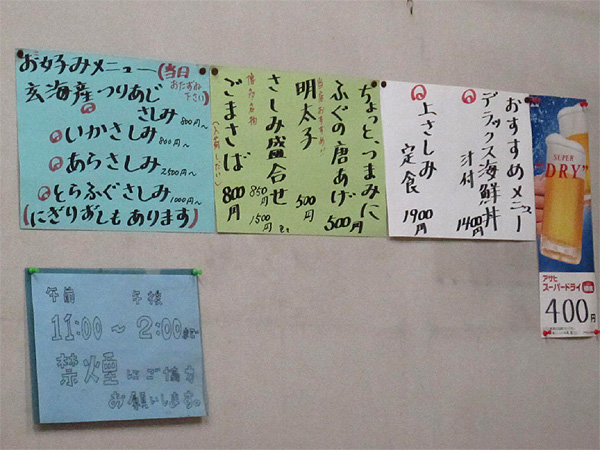 お好みメニュー(当日
おたずね
下さい)
玄海産つりあじ
さしみ 800円～
いかさしみ
800円～
あらさしみ
2500円～
とらふぐさしみ
1000円～
(にぎりずしもあります)
ちょっと、つまみに
ふぐの唐あげ 500円
明太子 500円
さしみ盛合せ
850円
1500円
ごまさば 800円
おすすめメニュー
デラックス海鮮丼
汁付 1400円
上さしみ
定食 1900円
SUPER
"DRY"
アサヒ
スーパードライ
400円
午前 午後
11:00～2:00まで
禁煙にご協力
お願いします。